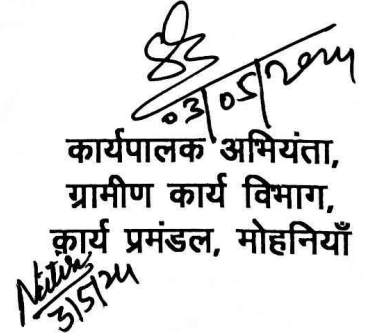 03/05/2024
कार्यपालक अभियंता,
ग्रामीण कार्य विभाग,
कार्य प्रमंडल, मोहनियाँ
3/5/24